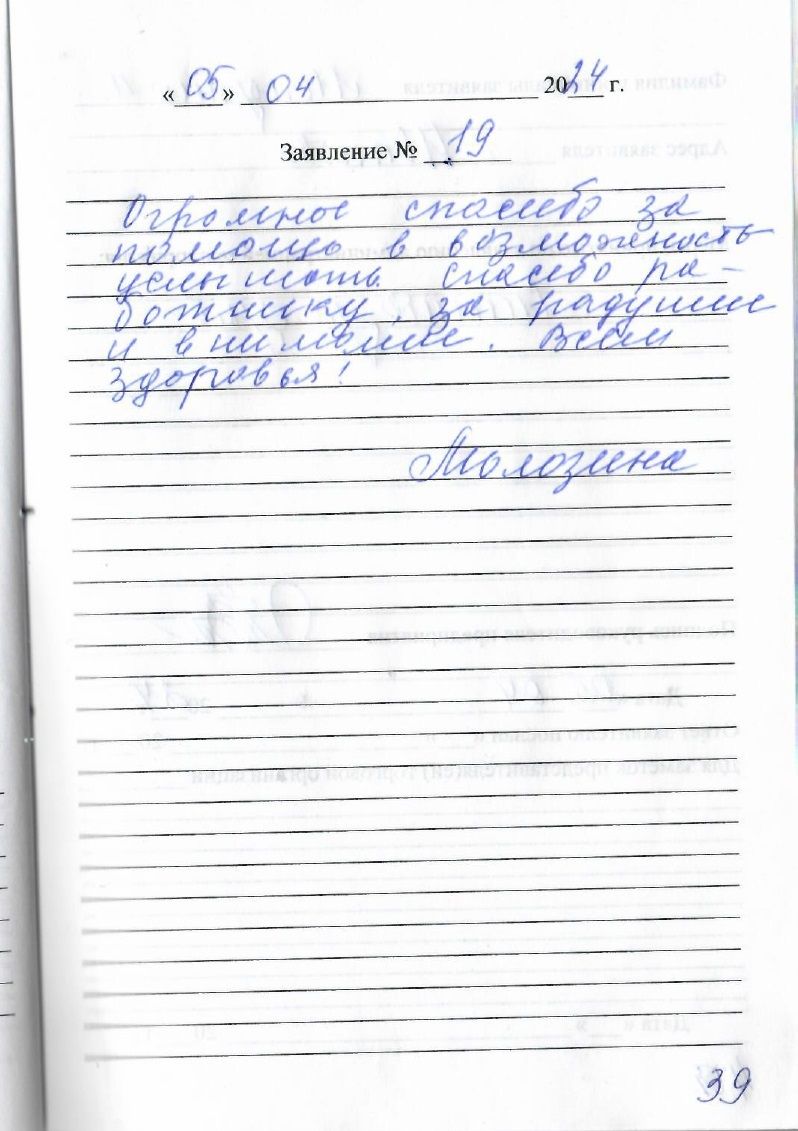 «05» 04 2024 г.
Заявление № 19
Огромное спасибо за
помощь в возможность
услышать спасибо ра-
ботнику, за радушие
и внимание. Всем
здоровья!
Молозина
39